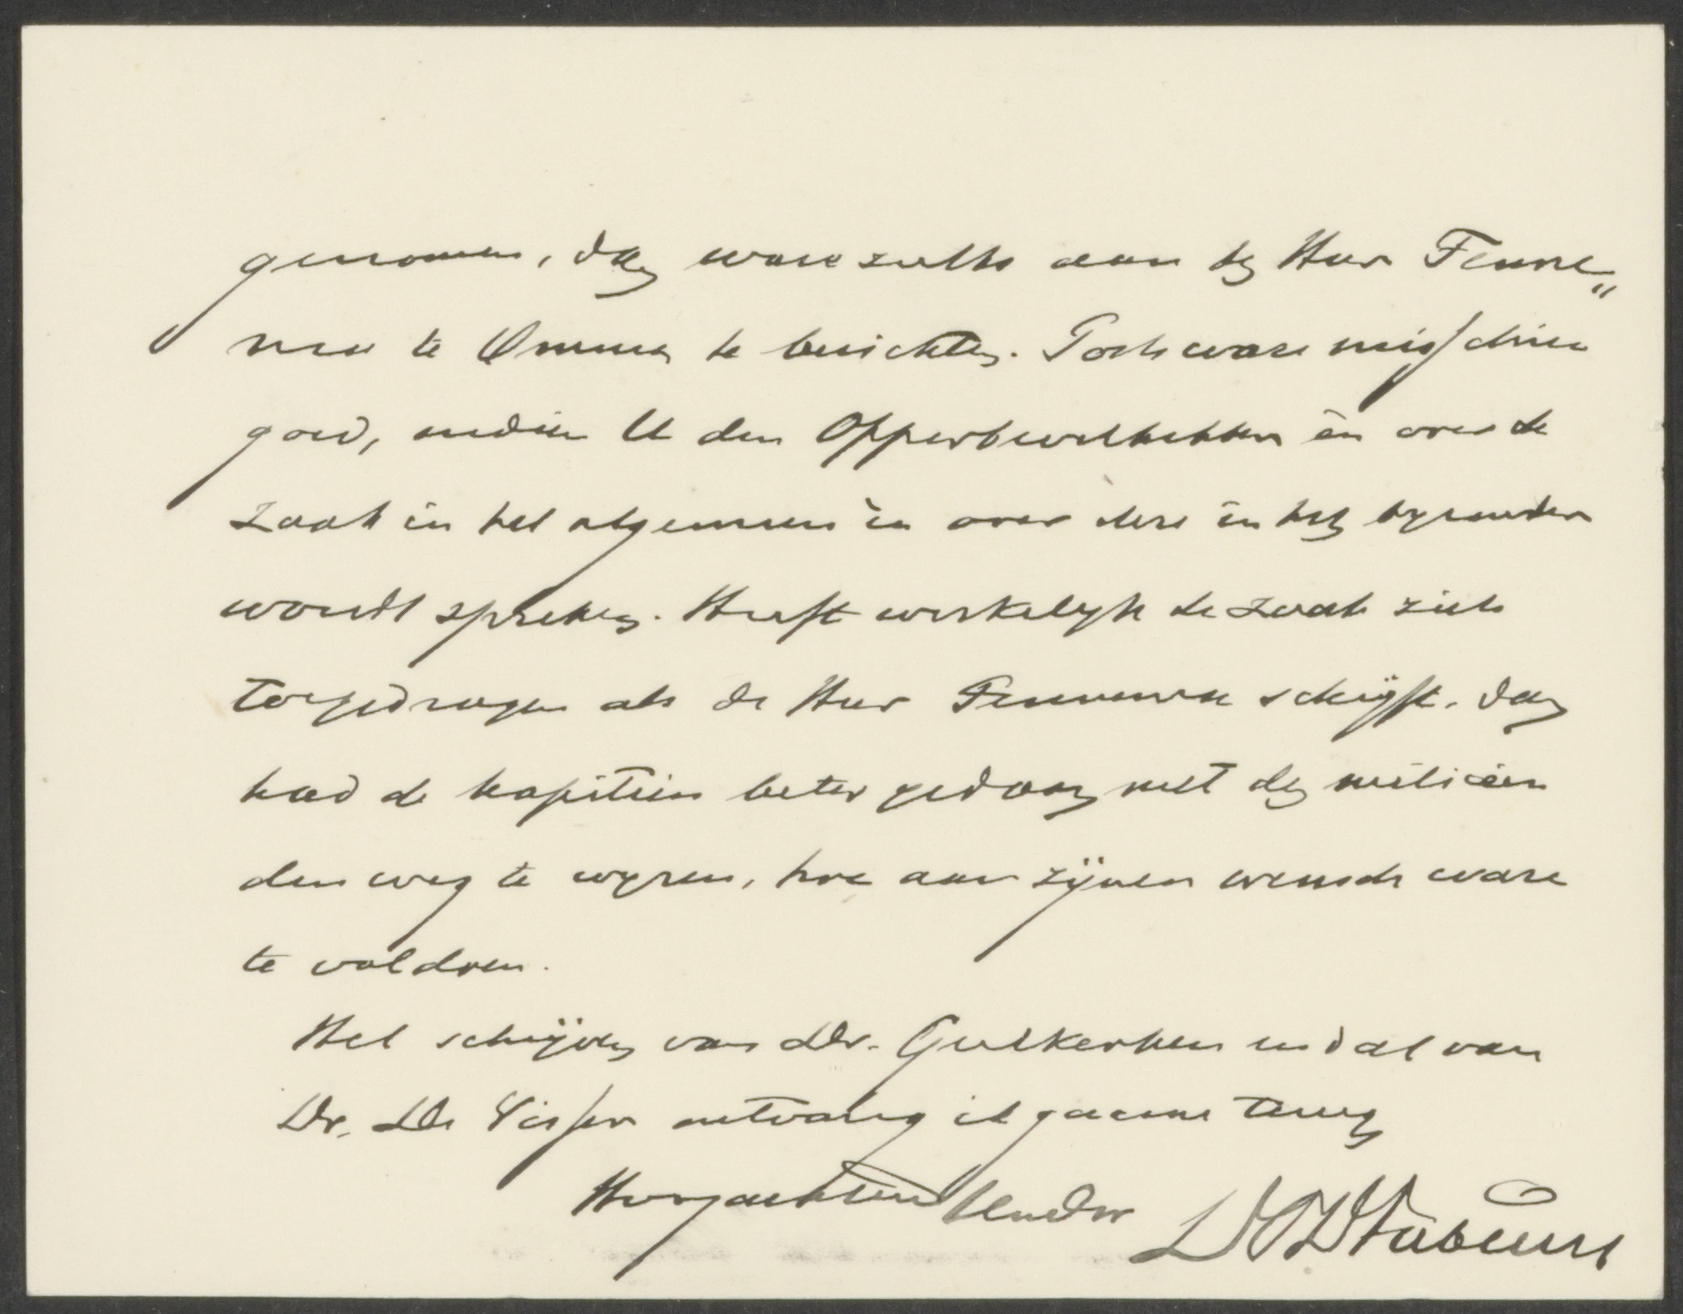 genomen, dan ware zulks aan den Heer Fenne„
ma te Ommen te berichten. Toch ware misschien
goed, indien U den Opperbevelhebber èn over de
zaak in het algemeen èn over deze in het byzonder
woudt spreken. Heeft werkelyk de zaak zich
toegedragen als de Heer Fennema schrijft, dan
had de kapitein beter gedaan met den milicien
den weg te wyzen, hoe aan zijnen wensch ware
te voldoen.
Het schrijven van Dr. Geelkerken en dat van
Dr. De Visser ontvang ik gaarne terug
Hoogachtend Uwedw